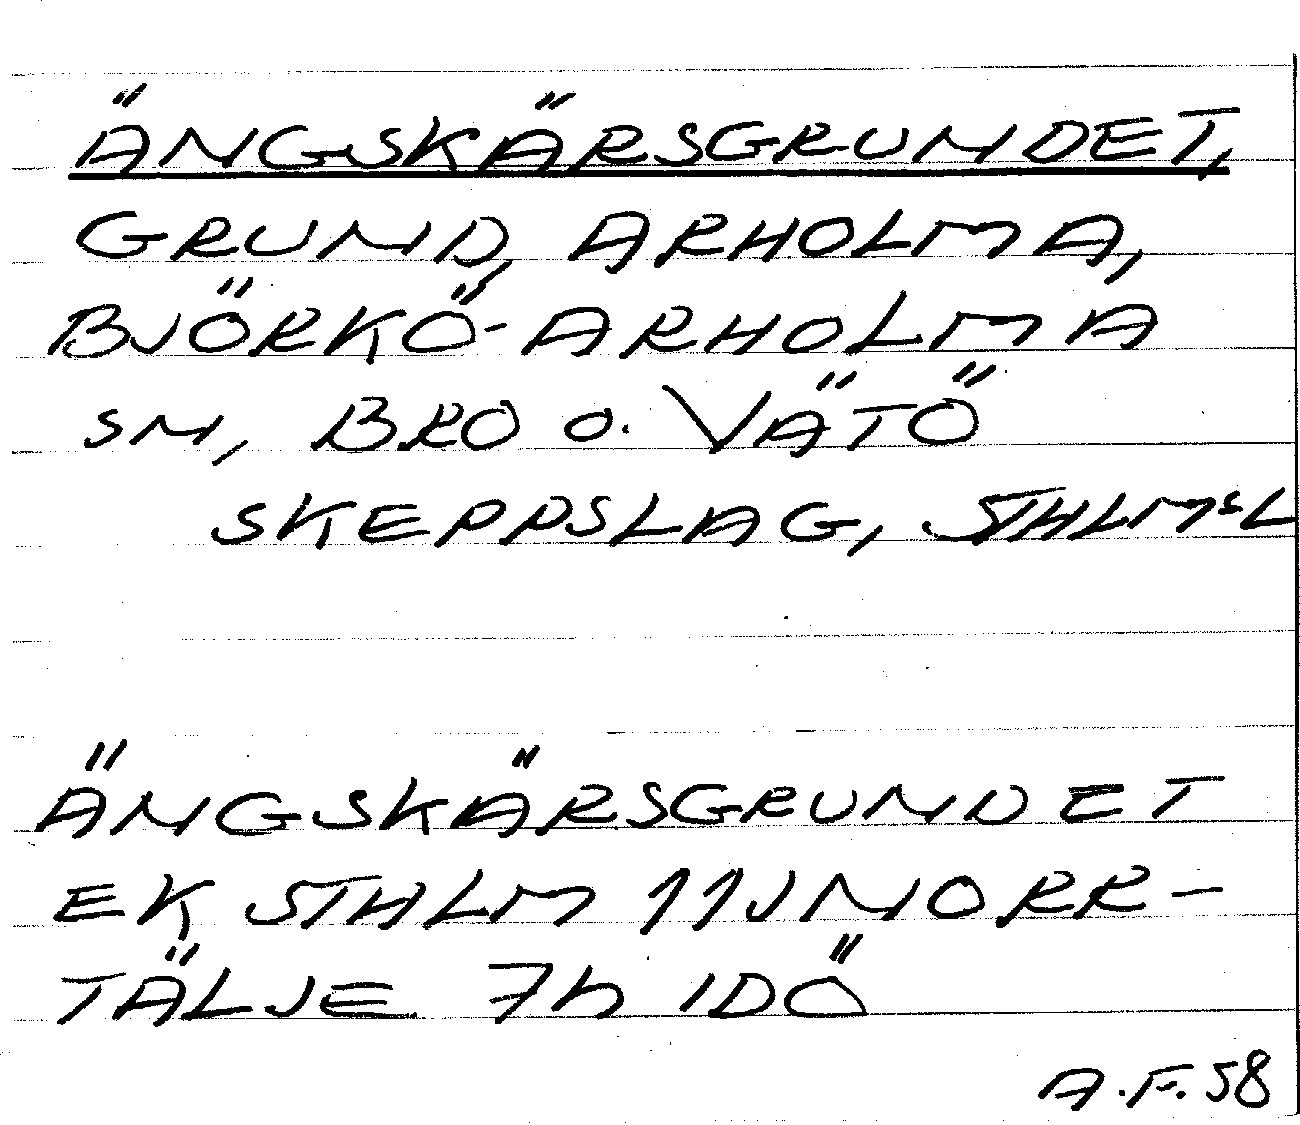 ÄNGSKÄRSGRUNDET,
GRUND, ARHOLMA,
BJÖRKÖ-ARHOLMA
SN, BRO O. VÄTÖ
SKEPPSLAG, STHLMSL
ÄNGSKÄRSGRUNDET
EK STHLM 11J NORR-
TÄLJE 7h IDÖ
A.F. 58